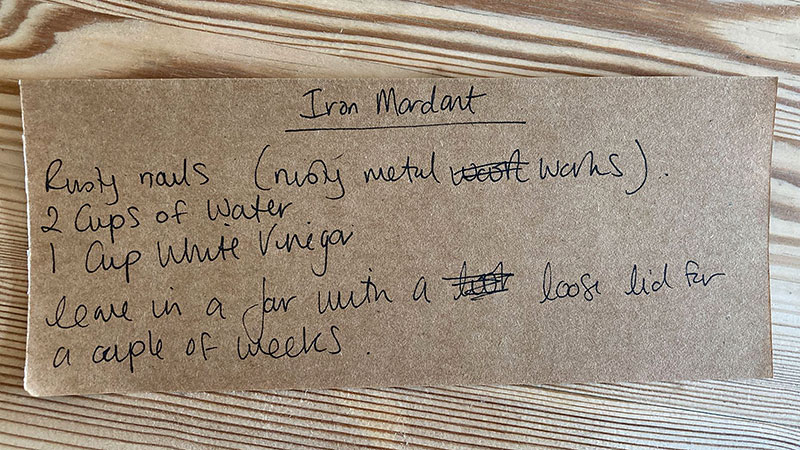 Iron Mordant
Rusty nails (rusty metal works).
2 Cups of Water
1 Cup White Vinegar
leave in a jar with a loose lid for
a couple of weeks.